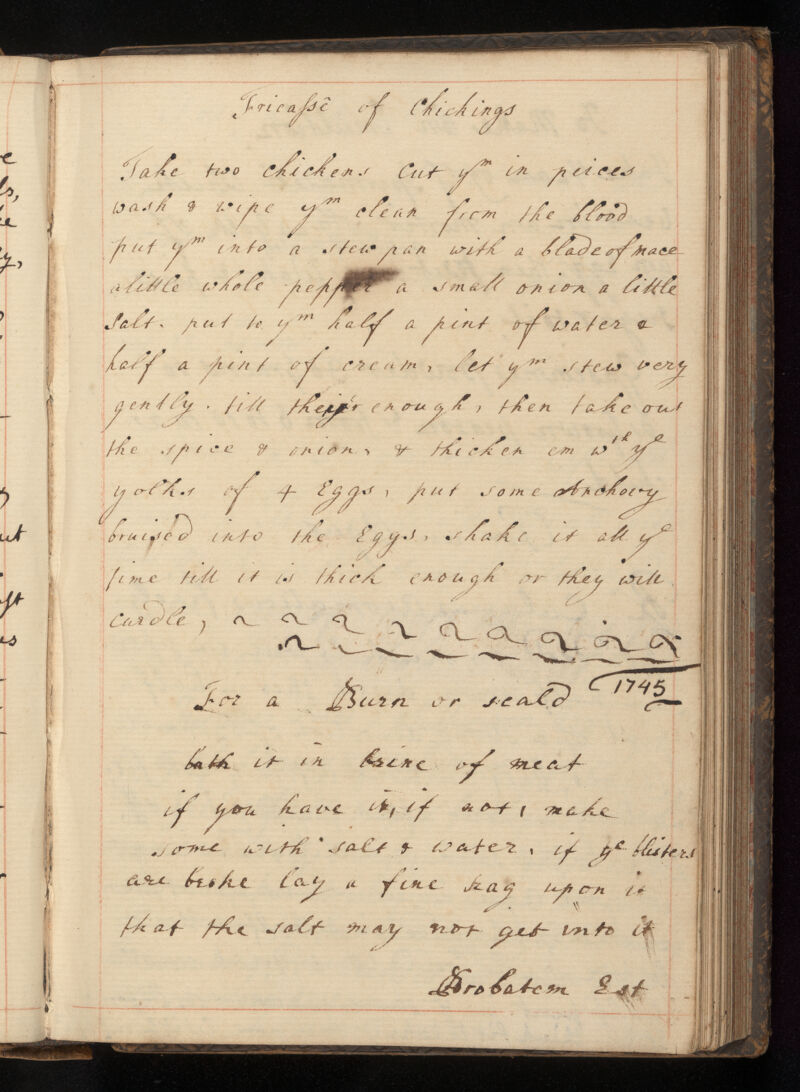 Fricassē of Chickings
Take two chickens cut yᵐ in peices
wash & wipe yᵐ clean from the blood
put yᵐ into a stew pan with a blade of mace
a little whole pepper a small onion a little
Salt. put to yᵐ half a pint of water &
half a pint of cream, let yᵐ stew very
gently. till their enough, then take out
the spice & onion, & thicken em wᵗʰ yᵉ
yolks of 4 Eggs, put some Anchovy
bruised into the Eggs, shake it all yᵉ
time till it is thick enough or they will
curdle,
1745
For a Burn or scald
bath it in brine of meat
if you have it, if not, make
some with salt & water, if yᵉ blisters
are broke lay a fine rag upon it
that the salt may not get into it
Probatem Est